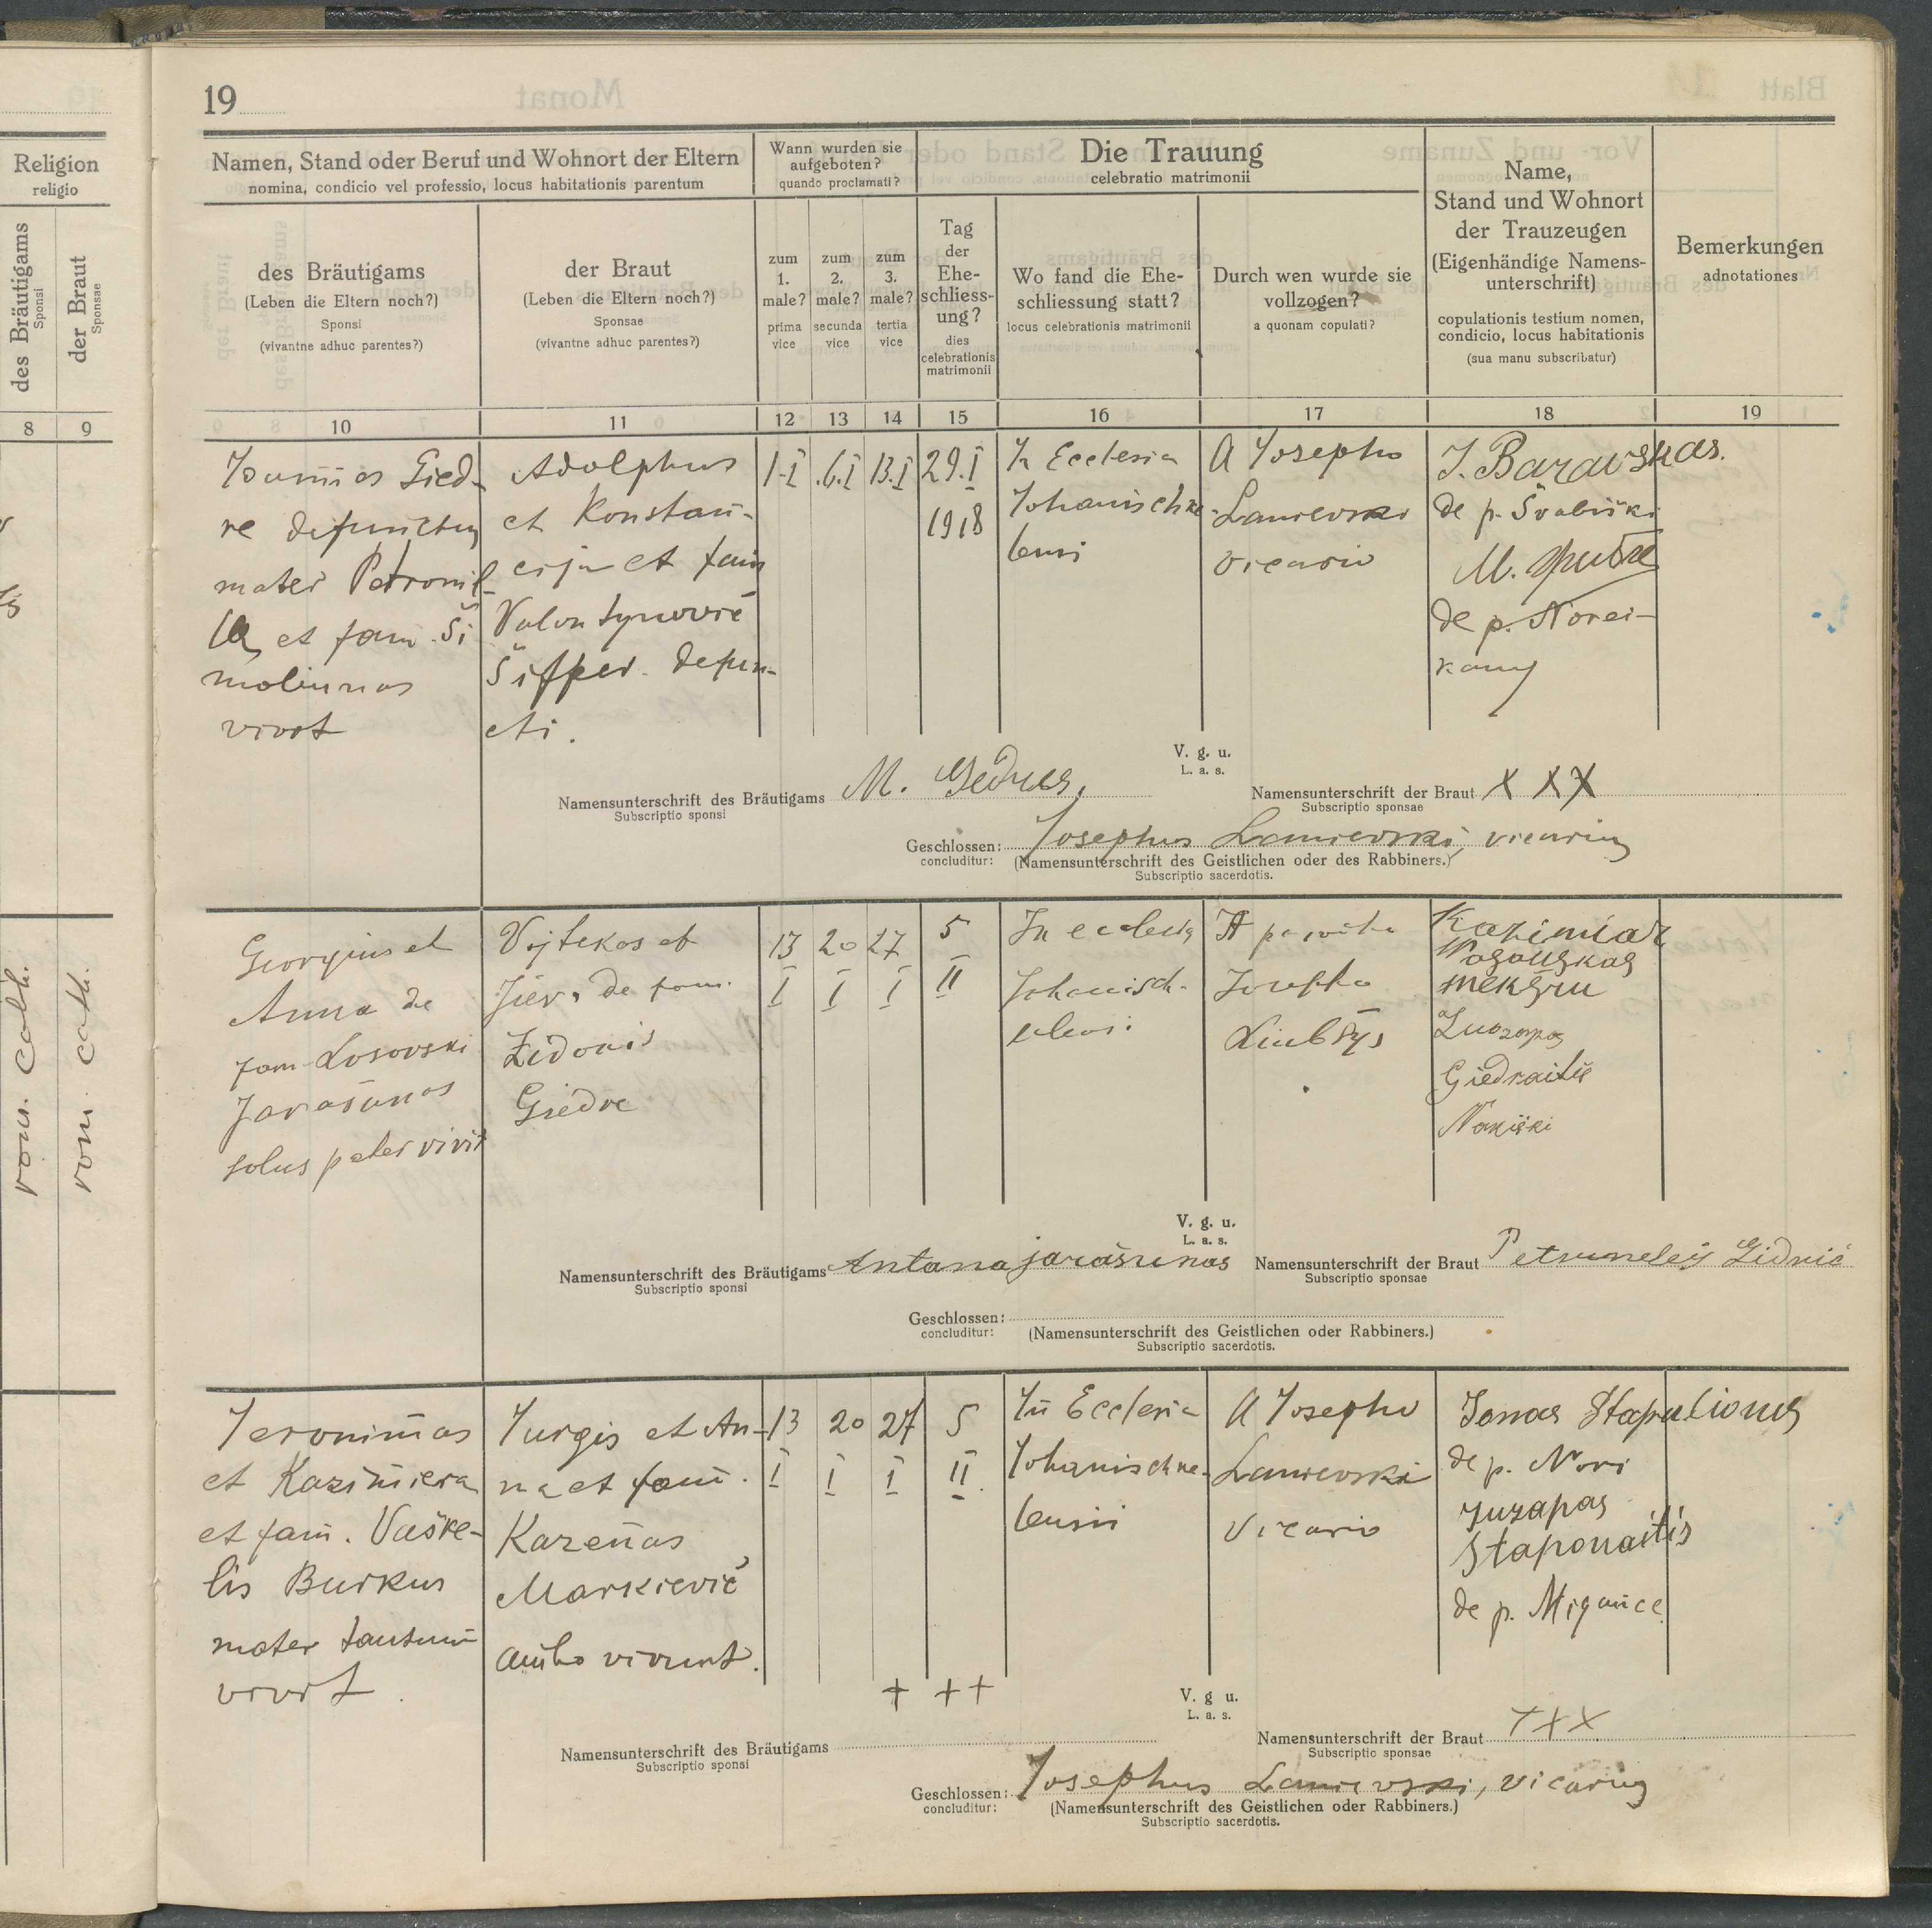 19
Religion
religio
des Bräutigams
Sponsi
der Braut
Sponsae
8
9
rom. cath.
rom. cath.
Namen, Stand oder Beruf und Wohnort der Eltern
nomina, condicio vel professio, locus habitationis parentum
Wann wurden sie
aufgeboten?
quando proclamati?
Die Trauung
celebratio matrimonii
Name,
Stand und Wohnort
der Trauzeugen
(Eigenhändige Namens-
unterschrift)
copulationis testium nomen,
condicio, locus habitationis
(sua manu subscribatur)
Bemerkungen
adnotationes
des Bräutigams
(Leben die Eltern noch?)
Sponsi
(vivantne adhuc parentes?)
der Braut
(Leben die Eltern noch?)
Sponsae
(vivantne adhuc parentes?)
zum
1.
male?
prima
vice
zum
2.
male?
secunda
vice
zum
3.
male?
tertia
vice
Tag
der
Ehe-
schliess-
ung?
dies
celebrationis
matrimonii
Wo fand die Ehe-
schliessung statt?
locus celebrationis matrimonii
Durch wen wurde sie
vollzogen?
a quonam copulati?
10 11 12 13 14 15 16 17 18 19
Gied-
re defunctus
mater Petronil-
la et fam. Ši
molunas
vivit
Adolphus
et Konstan-
cija et fam
Šifper. defun-
cti.
1.I 6.I 13.I 29.I
1918
In Ecclesia
Johanischke-
lensi
A Josepho
Lanievski
vicario
J. Baravskas.
de p. Švabiški
M.
de p. Norei-
kany
V. g. u.
L. a. s.
Namensunterschrift des Bräutigams M. Gedras,
Subscriptio sponsi
Namensunterschrift der Braut X X X
Subscriptio sponsae
Geschlossen: Josephus Lanievski, vicarius
concluditur: (Namensunterschrift des Geistlichen oder des Rabbiners.)
Subscriptio sacerdotis.
Georgius et
Anna de
fam Losovski
Jarašunas
solus pater vivit
Vojtekos et
de fam.
Židonis
Giedre
13 20 27 5
I I I II
In ecclesia
Johanisch-
A
Josepho
Liubšys
Kazimiar
Giedraitis
V. g. u.
L. a. s.
Namensunterschrift des Bräutigams Antana jarašunas
Subscriptio sponsi
Namensunterschrift der Braut Petrunelės Gidrić
Subscriptio sponsae
Geschlossen:
concluditur: (Namensunterschrift des Geistlichen oder Rabbiners.)
Subscriptio sacerdotis.
Jeronimas
et Kazimiera
et fam. Vaške-
lis Burkus
mater tantum
vivit.
Jurgis et An-
na et fam.
Karenas
Markievič
ambo vivunt.
13 20 27 5
I I I II.
In Ecclesia
Johanischke-
lensii
A Josepho
Lanievski
Vicario
Jonas Stapulionus
de p. Nori
Juzapas
Staponaitis
de p. Migonice
+ + +
V. g u.
L. a. s.
Namensunterschrift des Bräutigams
Subscriptio sponsi
Namensunterschrift der Braut + + X
Subscriptio sponsae
Geschlossen: Josephus Lanievski, vicarius
concluditur: (Namensunterschrift des Geistlichen oder Rabbiners.)
Subscriptio sacerdotis.